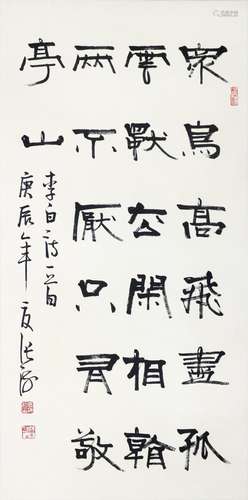 眾鳥高飛盡孤
雲獨去閑相看
兩不厭只有敬
亭山
李白诗一首
庚辰年夏